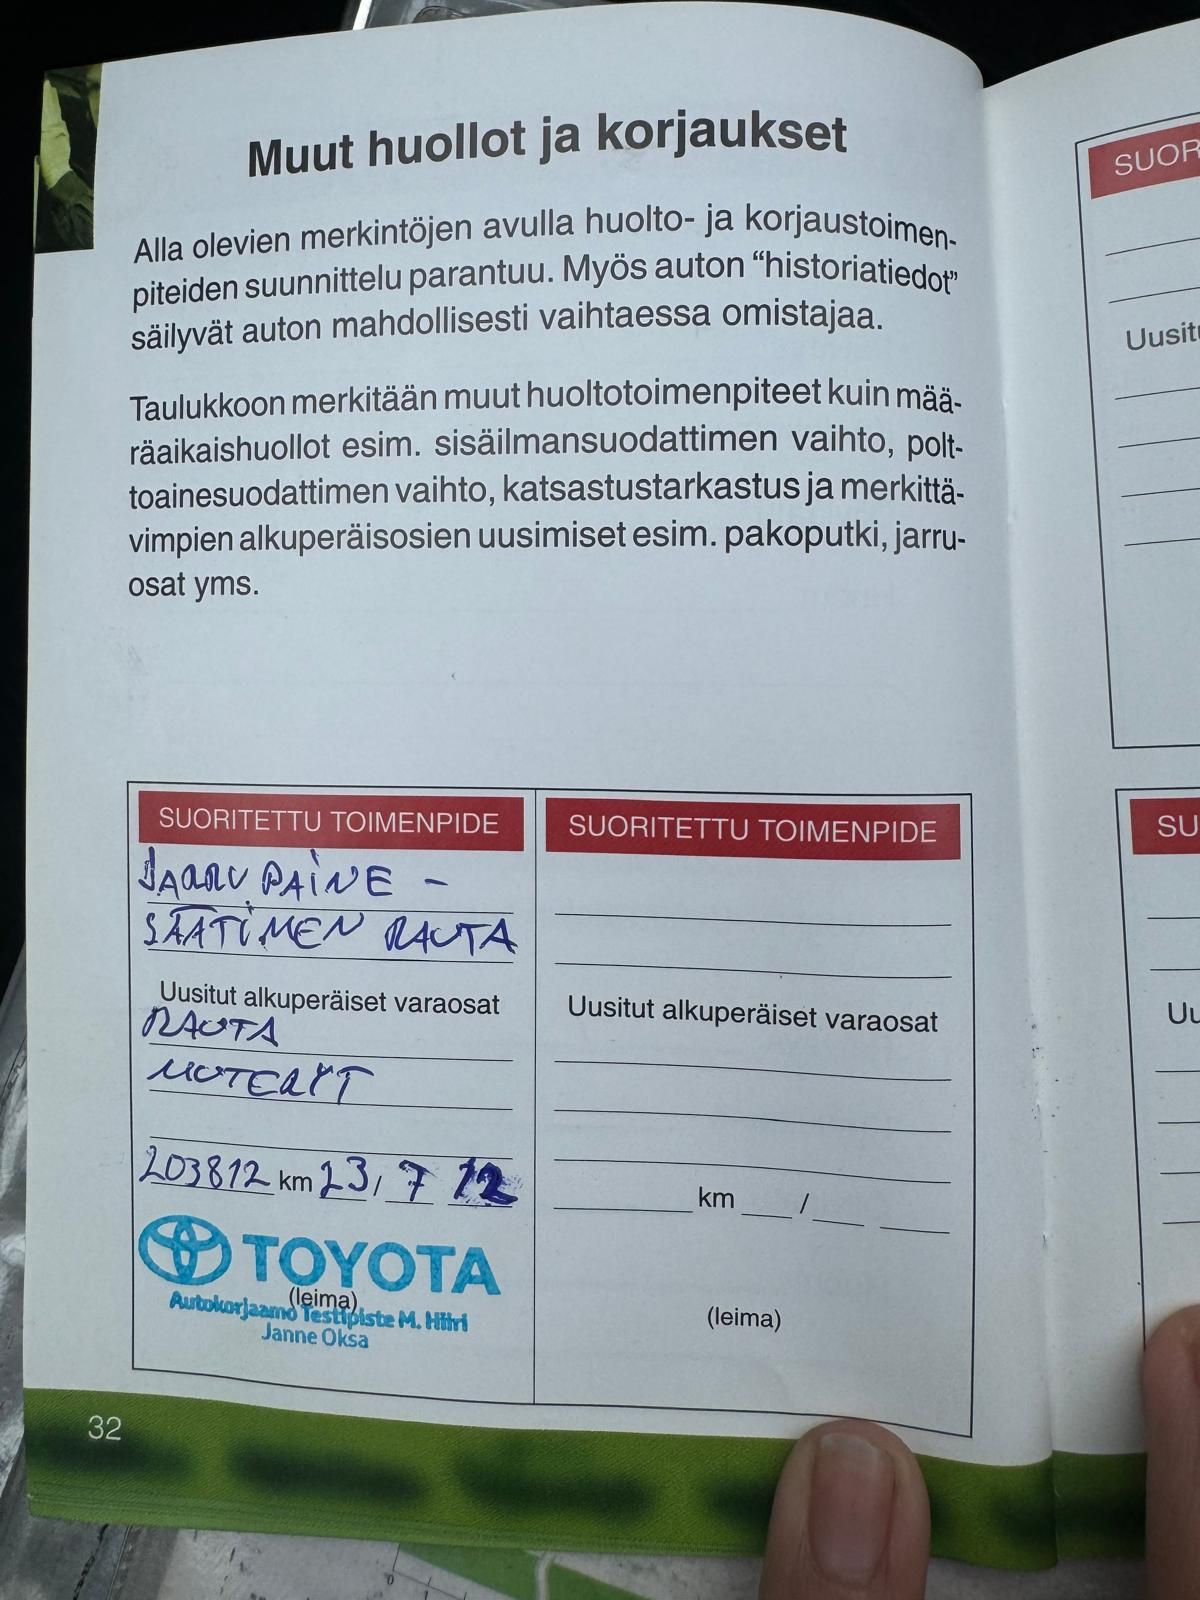 Muut huollot ja korjaukset
Alla olevien merkintöjen avulla huolto- ja korjaustoimen-
piteiden suunnittelu parantuu. Myös auton “historiatiedot”
säilyvät auton mahdollisesti vaihtaessa omistajaa.
Taulukkoon merkitään muut huoltotoimenpiteet kuin mää-
räaikaishuollot esim. sisäilmansuodattimen vaihto, polt-
toainesuodattimen vaihto, katsastustarkastus ja merkittä-
vimpien alkuperäisosien uusimiset esim. pakoputki, jarru-
osat yms.
SUORITETTU TOIMENPIDE
JARRU PAINE -
SÄÄTIMEN RAUTA
Uusitut alkuperäiset varaosat
RAUTA
MUTERIT
203812 km 23 / 7 12
TOYOTA
(leima)
Autokorjaamo Testipiste M. Hiiri
Janne Oksa
SUORITETTU TOIMENPIDE
Uusitut alkuperäiset varaosat
km /
(leima)
32
SUOR
Uusitu
SU
Uu